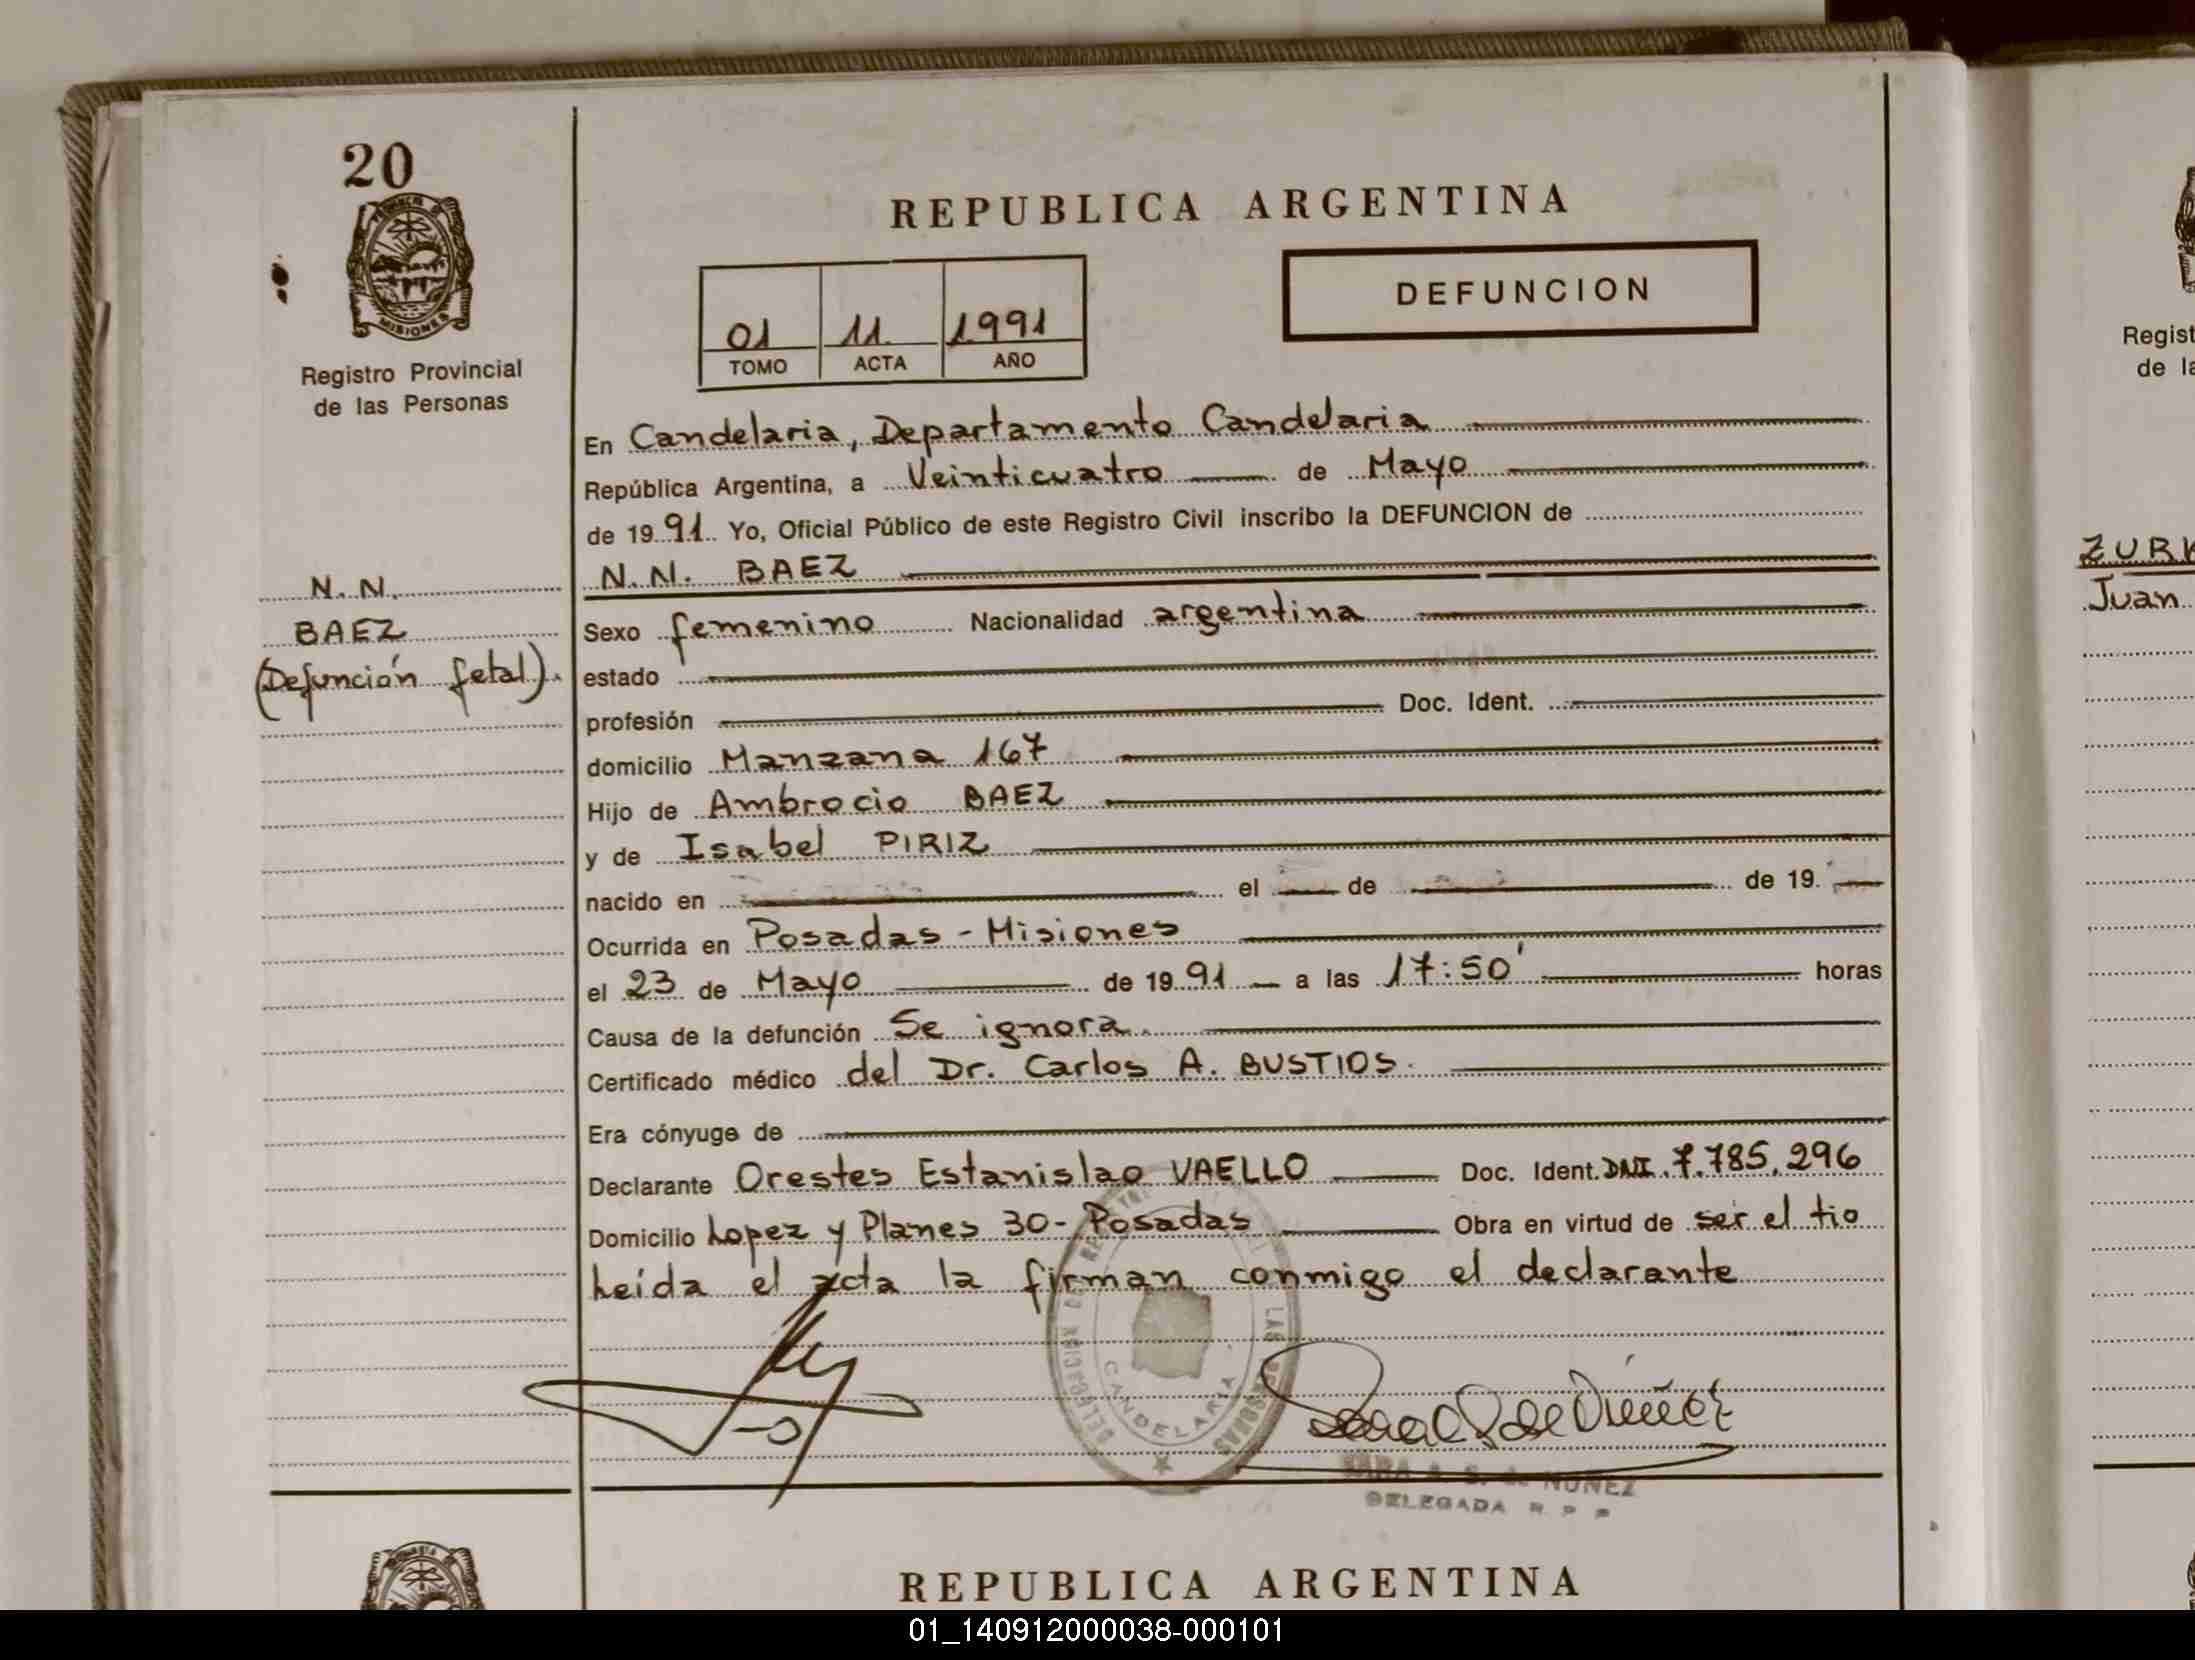 20
MISIONES
Registro Provincial
de las Personas
N.N.
BAEZ
(Defunción fetal).
REPUBLICA ARGENTINA
01 11 1991
TOMO ACTA AÑO
DEFUNCION
En Candelaria, Departamento Candelaria
República Argentina, a Veinticuatro de Mayo
de 1991 Yo, Oficial Público de este Registro Civil inscribo la DEFUNCION de
N.N. BAEZ
Sexo femenino Nacionalidad argentina
estado
profesión Doc. Ident.
domicilio Manzana 167
Hijo de Ambrocio BAEZ
y de Isabel PIRIZ
nacido en el de de 19
Ocurrida en Posadas - Misiones
el 23 de Mayo de 1991 a las 17:50' horas
Causa de la defunción Se ignora.
Certificado médico del Dr. Carlos A. BUSTIOS.
Era cónyuge de
Declarante Orestes Estanislao VAELLO Doc. Ident. DNI. 7.785.296
Domicilio Lopez y Planes 30 - Posadas Obra en virtud de ser el tio
Leída el acta la firman conmigo el declarante
CANDELARIA
DELEGADA R P P
REPUBLICA ARGENTINA
Regist
de la
ZURK
Juan
01_140912000038-000101